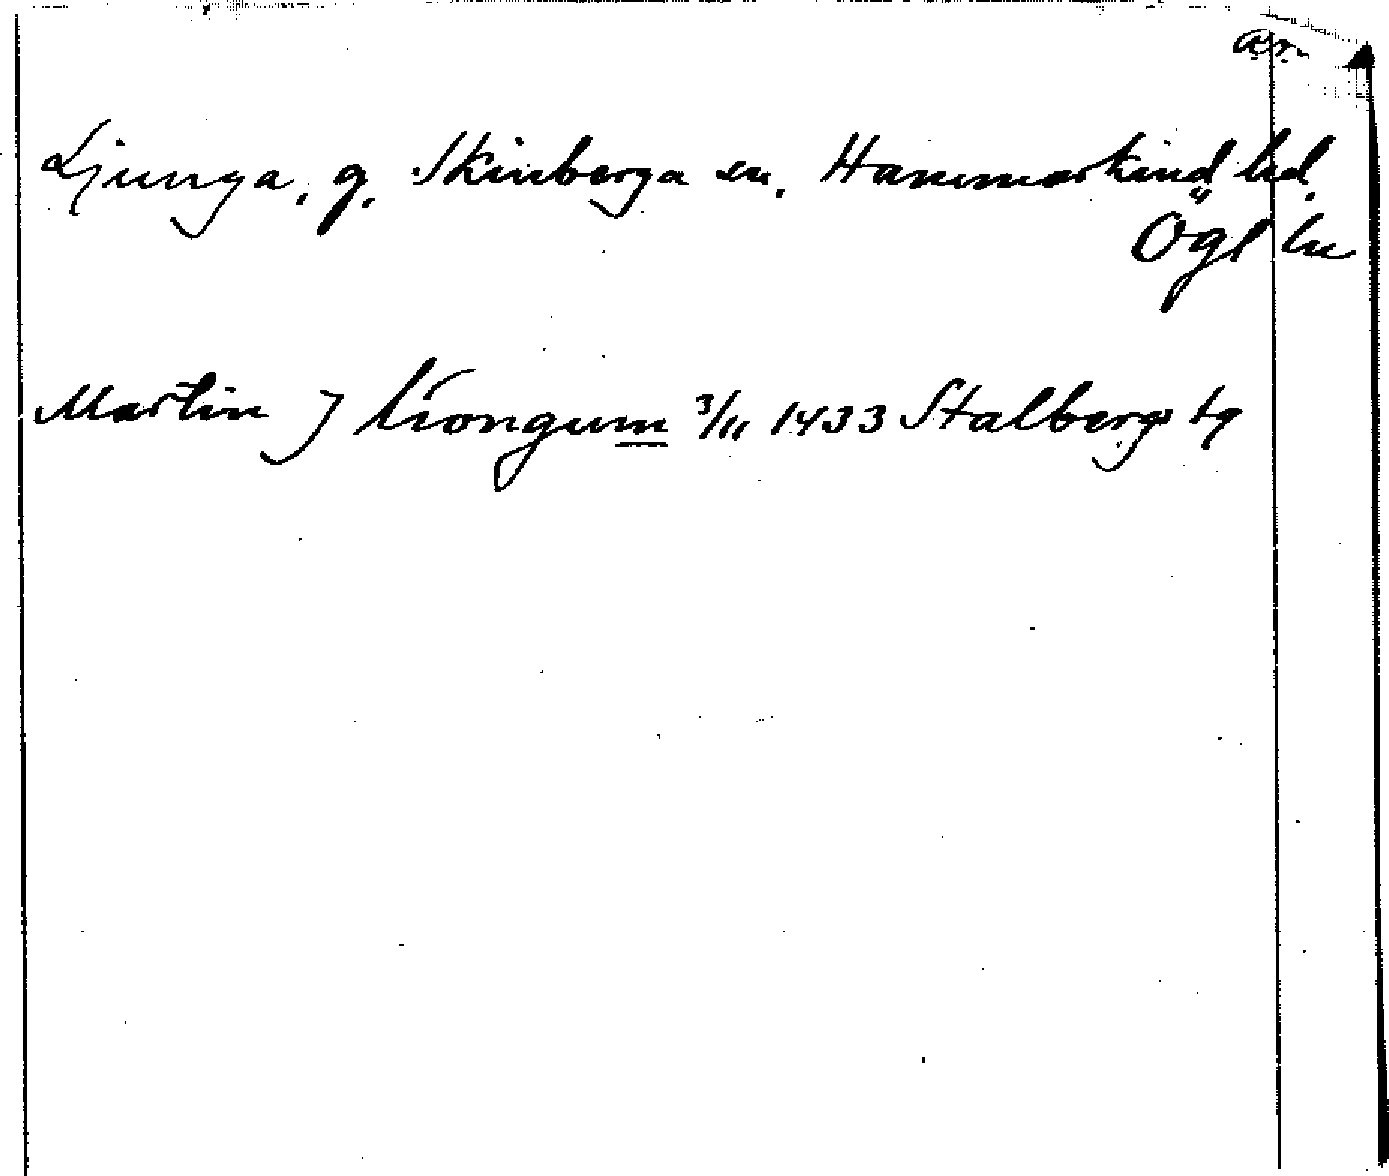 Ljunga, g. Skinberga sn, Hammarkind hd.
Ögl ln
Martin J liongum 3/11 1433 Stalbergs tg